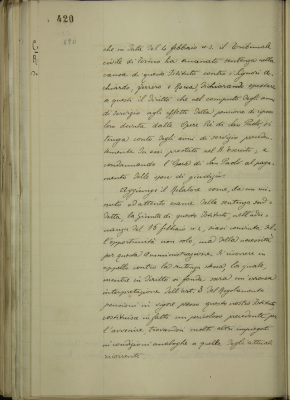 420
che in data del 6 febbraio u.s. il Tribunale
civile di Torino ha emanato sentenza nella
causa di questo Istituto contro i Signori
e Rossi, dichiarando spettare
a questi il diritto che nel computo degli anni
di servizio agli effetti della pensione di riposo
loro dovuta dalle Opere Pie di San Paolo, si
tenga conto degli anni di servizio
e
condannando l'Opera di San Paolo al paga-
mento delle spese di giudizio.
Aggiunge il Relatore come, da un mi-
nuto ed attento esame della sentenza sud-
detta, la Giunta di questo Istituto, nell'adu-
nanza del 18 febbraio u.s., siasi convinta del-
l'opportunità non solo, ma della necessità
per questa Amministrazione, di ricorrere in
appello contro la sentenza stessa, la quale,
mentre in diritto si fonda sovra un'erronea
interpretazione dell'art. 3 del Regolamento
pensioni in vigore presso questo nostro Istituto
costituisce in fatto un pericoloso precedente per
l'avvenire, trovandosi molti altri impiegati
in condizioni analoghe a quelle degli attuali
ricorrenti.